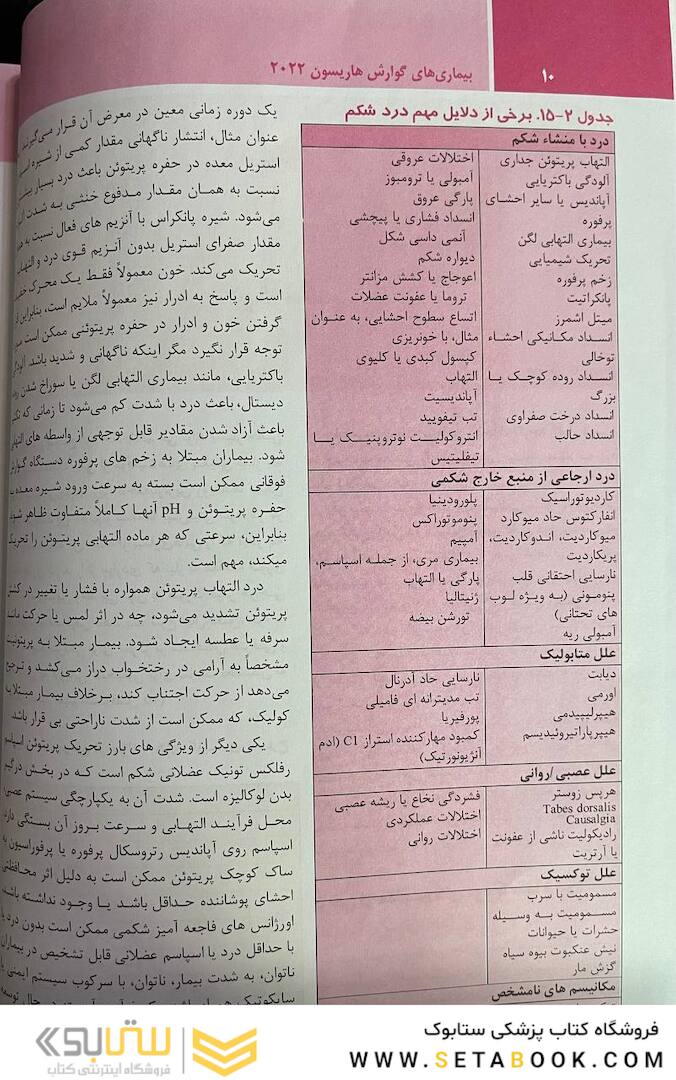 بیماری‌های گوارش هاریسون ۲۰۲۲
۱۰
جدول ۲-۱۵. برخی از دلایل مهم درد شکم
درد با منشاء شکم
التهاب پریتوئن جداری
آلودگی باکتریایی
آپاندیس یا سایر احشای
پرفوره
بیماری التهابی لگن
تحریک شیمیایی
زخم پرفوره
پانکراتیت
میتل اشمرز
انسداد مکانیکی احشاء
توخالی
انسداد روده کوچک یا
بزرگ
انسداد درخت صفراوی
انسداد حالب
اختلالات عروقی
آمبولی یا ترومبوز
پارگی عروق
انسداد فشاری یا پیچشی
آنمی داسی شکل
دیواره شکم
اعوجاج یا کشش مزانتر
تروما یا عفونت عضلات
اتساع سطوح احشایی، به عنوان
مثال، با خونریزی
کپسول کبدی یا کلیوی
التهاب
آپاندیسیت
تب تیفویید
انتروکولیت نوتروپنیک یا
تیفلیتیس
درد ارجاعی از منبع خارج شکمی
کاردیوتوراسیک
انفارکتوس حاد میوکارد
میوکاردیت، اندوکاردیت،
پریکاردیت
نارسایی احتقانی قلب
پنومونی (به ویژه لوب
های تحتانی)
آمبولی ریه
پلورودینیا
پنوموتوراکس
آمپیم
بیماری مری، از جمله اسپاسم،
پارگی یا التهاب
ژنیتالیا
تورشن بیضه
علل متابولیک
دیابت
اورمی
هیپرلیپیدمی
هیپرپاراتیروئیدیسم
نارسایی حاد آدرنال
تب مدیترانه ای فامیلی
پورفیریا
کمبود مهارکننده استراز C1 (ادم
آنژیونورتیک)
علل عصبی/روانی
هرپس زوستر
Tabes dorsalis
Causalgia
رادیکولیت ناشی از عفونت
یا آرتریت
فشردگی نخاع یا ریشه عصبی
اختلالات عملکردی
اختلالات روانی
علل توکسیک
مسمومیت با سرب
مسمومیت به وسیله
حشرات یا حیوانات
نیش عنکبوت بیوه سیاه
گزش مار
مکانیسم های نامشخص
یک دوره زمانی معین در معرض آن قرار می‌گیرند
عنوان مثال، انتشار ناگهانی مقدار کمی از شیره
استریل معده در حفره پریتوئن باعث درد بسیار
نسبت به همان مقدار مدفوع خنثی به شدت
می‌شود. شیره پانکراس با آنزیم های فعال نسبت به
مقدار صفرای استریل بدون آنزیم قوی درد و التهاب
تحریک می‌کند. خون معمولاً فقط یک محرک
است و پاسخ به ادرار نیز معمولاً ملایم است، بنابراین
گرفتن خون و ادرار در حفره پریتوئنی ممکن است
توجه قرار نگیرد مگر اینکه ناگهانی و شدید باشد.
باکتریایی، مانند بیماری التهابی لگن یا سوراخ شدن
دیستال، باعث درد با شدت کم می‌شود تا زمانی که
باعث آزاد شدن مقادیر قابل توجهی از واسطه های
شود. بیماران مبتلا به زخم های پرفوره دستگاه گوارش
فوقانی ممکن است بسته به سرعت ورود شیره معده به
حفره پریتوئن و pH آنها کاملاً متفاوت ظاهر شوند
بنابراین، سرعتی که هر ماده التهابی پریتوئن را تحریک
میکند، مهم است.
درد التهاب پریتوئن همواره با فشار یا تغییر در کشش
پریتوئن تشدید می‌شود، چه در اثر لمس یا حرکت مانند
سرفه یا عطسه ایجاد شود. بیمار مبتلا به پریتونیت
مشخصاً به آرامی در رختخواب دراز می‌کشد و ترجیح
می‌دهد از حرکت اجتناب کند، برخلاف بیمار مبتلا به
کولیک، که ممکن است از شدت ناراحتی بی قرار باشد.
یکی دیگر از ویژگی های بارز تحریک پریتوئن اسپاسم
رفلکس تونیک عضلانی شکم است که در بخش درگیر
بدن لوکالیزه است. شدت آن به یکپارچگی سیستم عصبی،
محل فرآیند التهابی و سرعت بروز آن بستگی دارد.
اسپاسم روی آپاندیس رتروسکال پرفوره یا پرفوراسیون به
ساک کوچک پریتوئن ممکن است به دلیل اثر محافظتی
احشای پوشاننده حداقل باشد یا وجود نداشته باشد.
اورژانس های فاجعه آمیز شکمی ممکن است بدون درد یا
با حداقل درد یا اسپاسم عضلانی قابل تشخیص در بیماران
ناتوان، به شدت بیمار، ناتوان، با سرکوب سیستم ایمنی یا
ستابوک
فروشگاه اینترنتی کتاب
فروشگاه کتاب پزشکی ستابوک
WWW.SETABOOK.COM